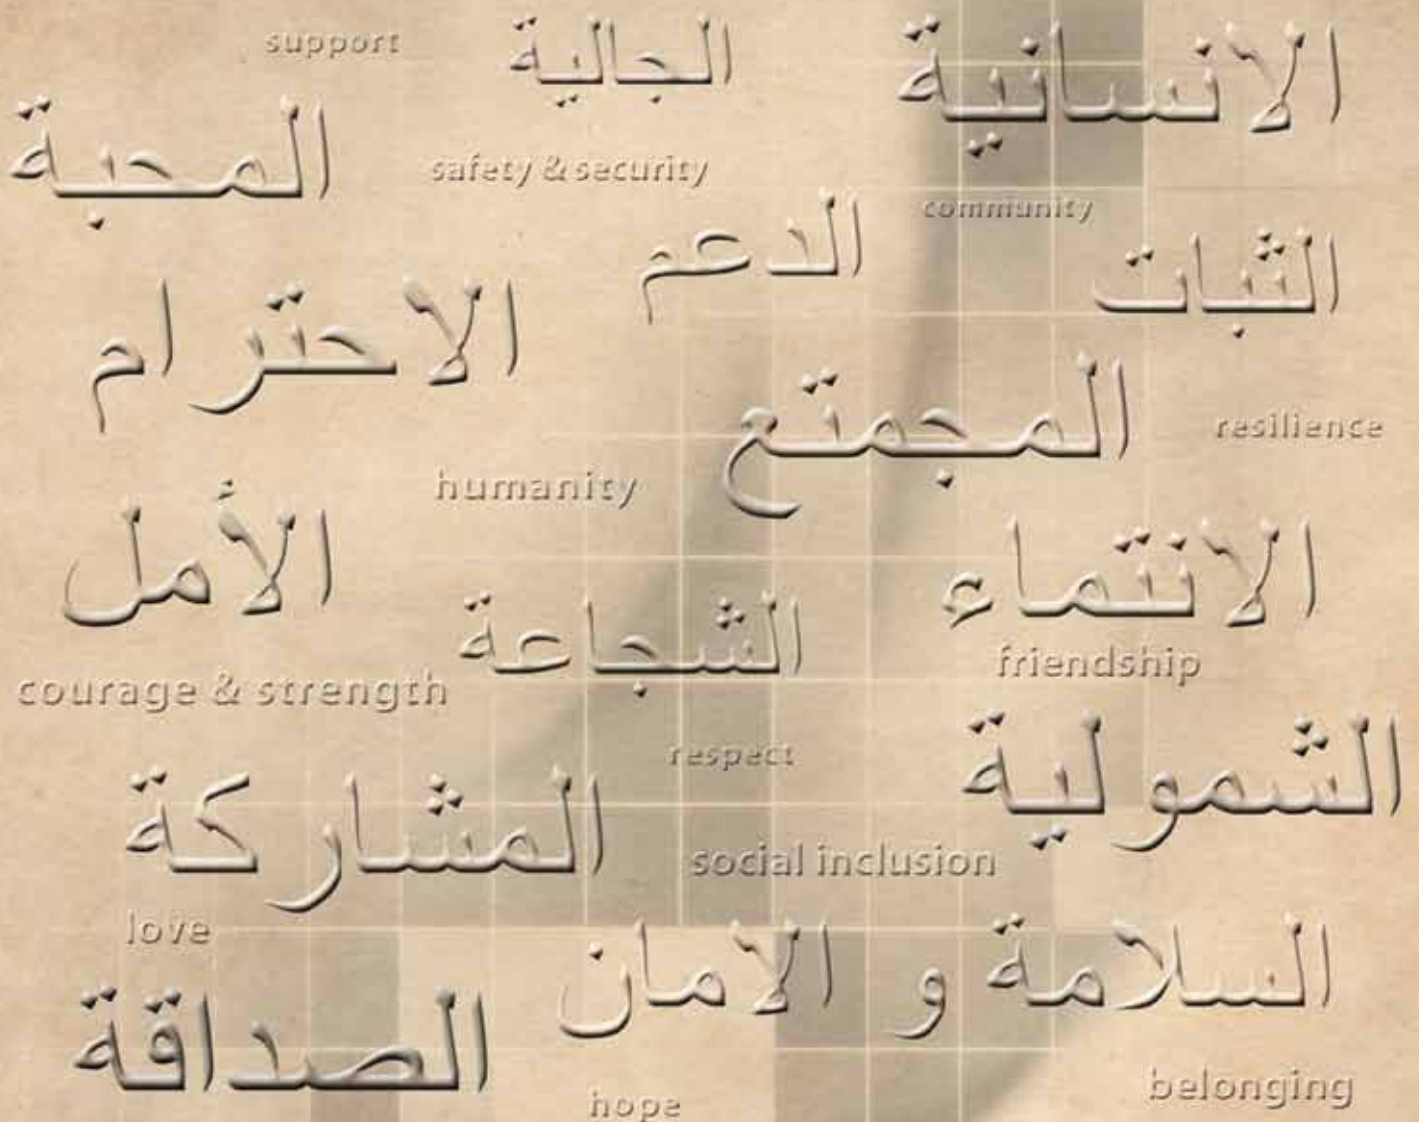 support
الجالية
الانسانية
المحبة
safety & security
community
الدعم
الثبات
الاحترام
المجمتع
resilience
humanity
الأمل
الانتماء
الشجاعة
friendship
courage & strength
respect
الشمولية
المشاركة
social inclusion
love
السلامة و الامان
الصداقة
belonging
hope